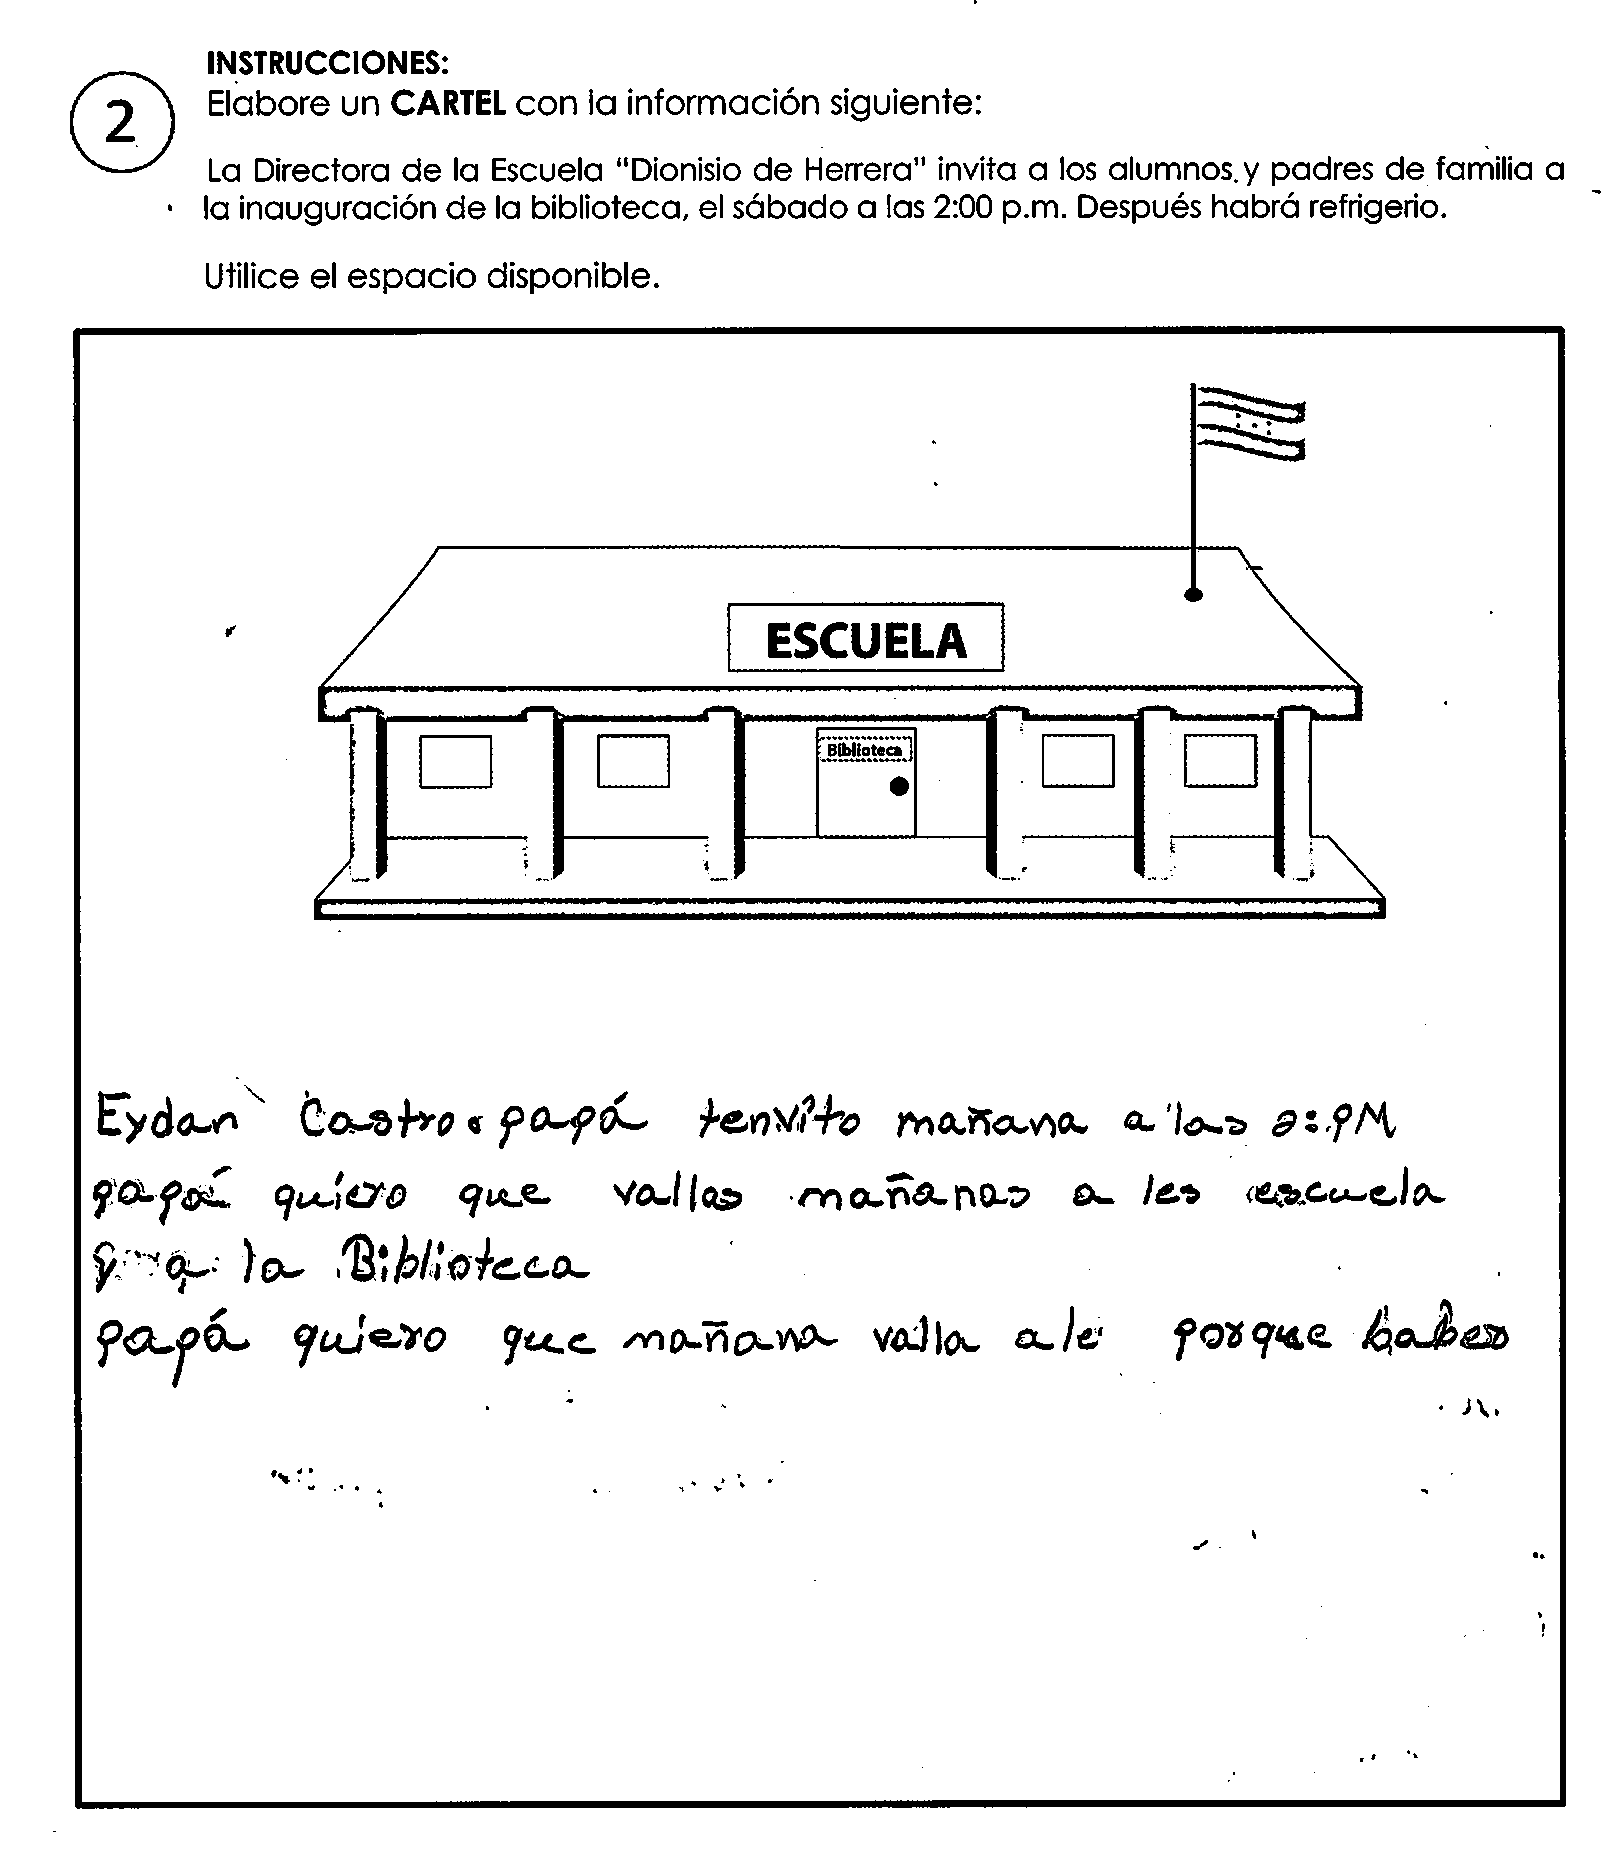 INSTRUCCIONES:
2
Elabore un CARTEL con la información siguiente:
La Directora de la Escuela "Dionisio de Herrera" invita a los alumnos y padres de familia a
la inauguración de la biblioteca, el sábado a las 2:00 p.m. Después habrá refrigerio.
Utilice el espacio disponible.
ESCUELA
Biblioteca
Eydan Castro papá tenvito mañana a las 2: PM
papá quiero que vallas mañanas a les escuela
a la Biblioteca
papá quiero que mañana valla ale porque haber